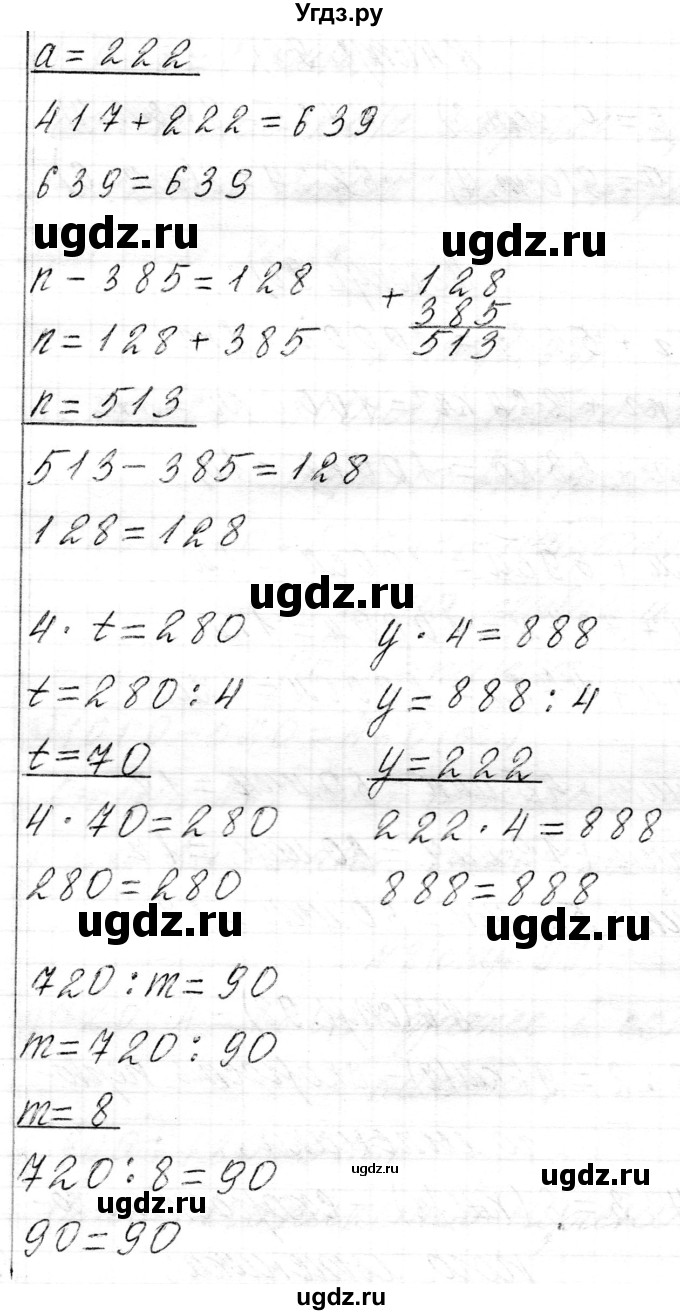 Угдз.ру
a = 222
417 + 222 = 639
639 = 639
ugdz.ru ugdz.ru
n - 385 = 128
n = 128 + 385
n = 513
+ 128
385
513
513 - 385 = 128
128 = 128
ugdz.ru
4 · t = 280
t = 280 : 4
t = 70
4 · 70 = 280
280 = 280
y · 4 = 888
y = 888 : 4
y = 222
222 · 4 = 888
888 = 888
ugdz.ru ugdz.ru
720 : m = 90
m = 720 : 90
m = 8
720 : 8 = 90
ugdz.ru
ugdz.ru
ugdz.ru
90 = 90
ugdz.ru